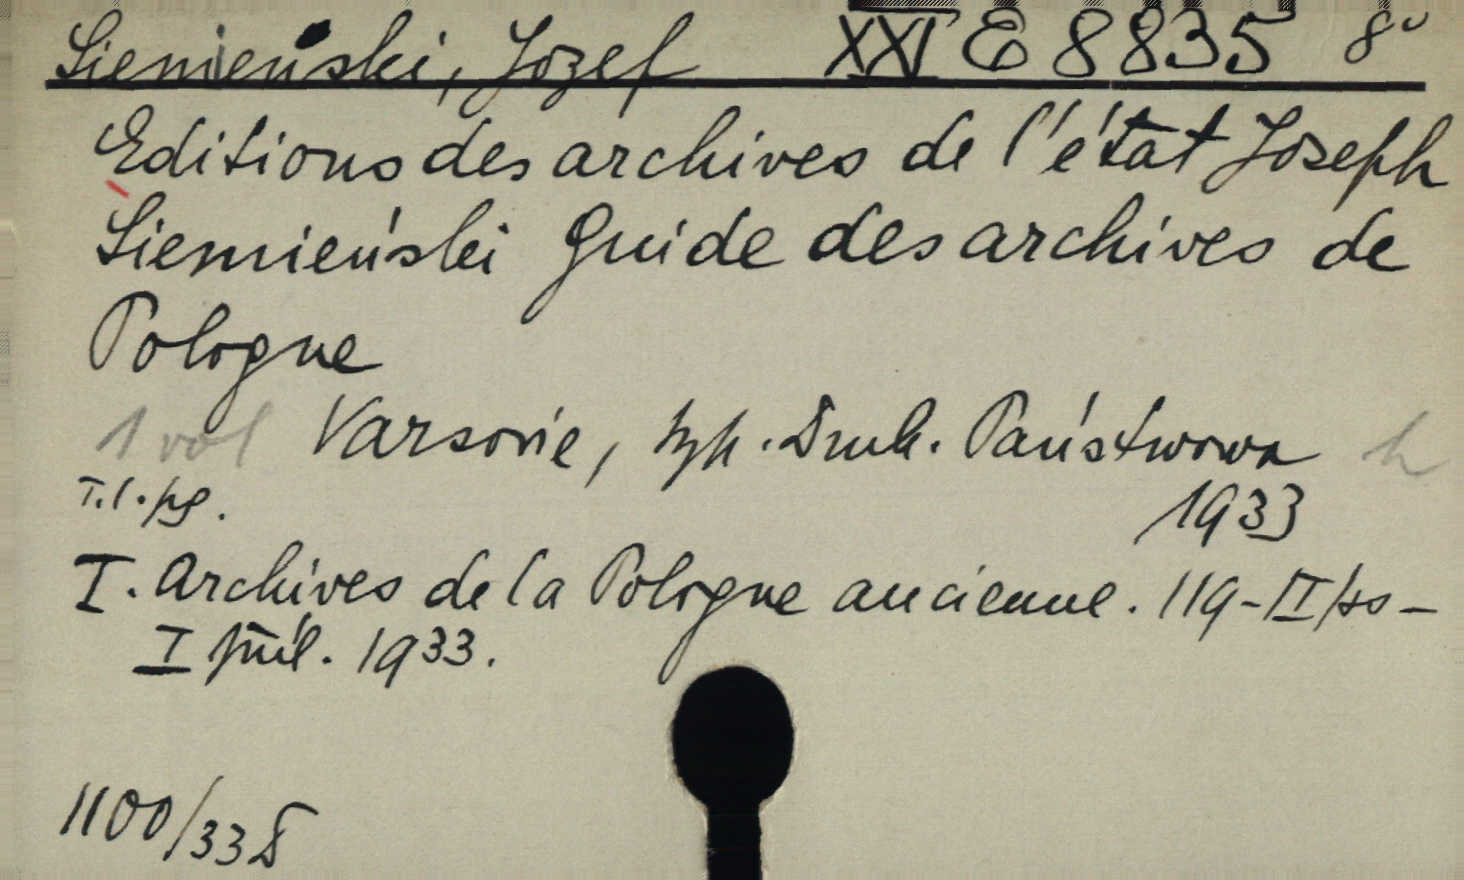 Siemieński, Jozef XXI E 8835 8°
Editions des archives de l'état Joseph
Siemieński Guide des archives de
Pologne
1 vol Varsovie, typ. Druk. Państwowa h
T.l.pg. 1933
I. Archives de la Pologne ancienne. 119-II
I pril. 1933.
1100/33